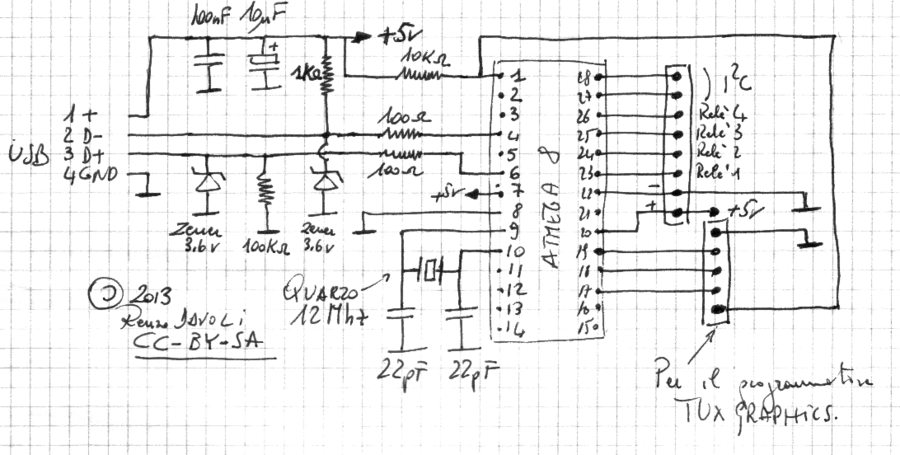 100nF 10µF
+5v
10KΩ
1KΩ
1 +
2 D-
3 D+
4 GND
USB
100Ω
100Ω
+5v
Zener
3.6v
100KΩ
Zener
3.6v
ATMEGA 8
1
2
3
4
5
6
7
8
9
10
11
12
13
14
28
27
26
25
24
23
22
21
20
19
18
17
16
15
) I²C
Relè 4
Relè 3
Relè 2
Relè 1
-
+
+5v
QUARZO
12Mhz
22pF 22pF
© 2013
Renzo DAVOLI
CC-BY-SA
Per il programmatore
TUXGRAPHICS.